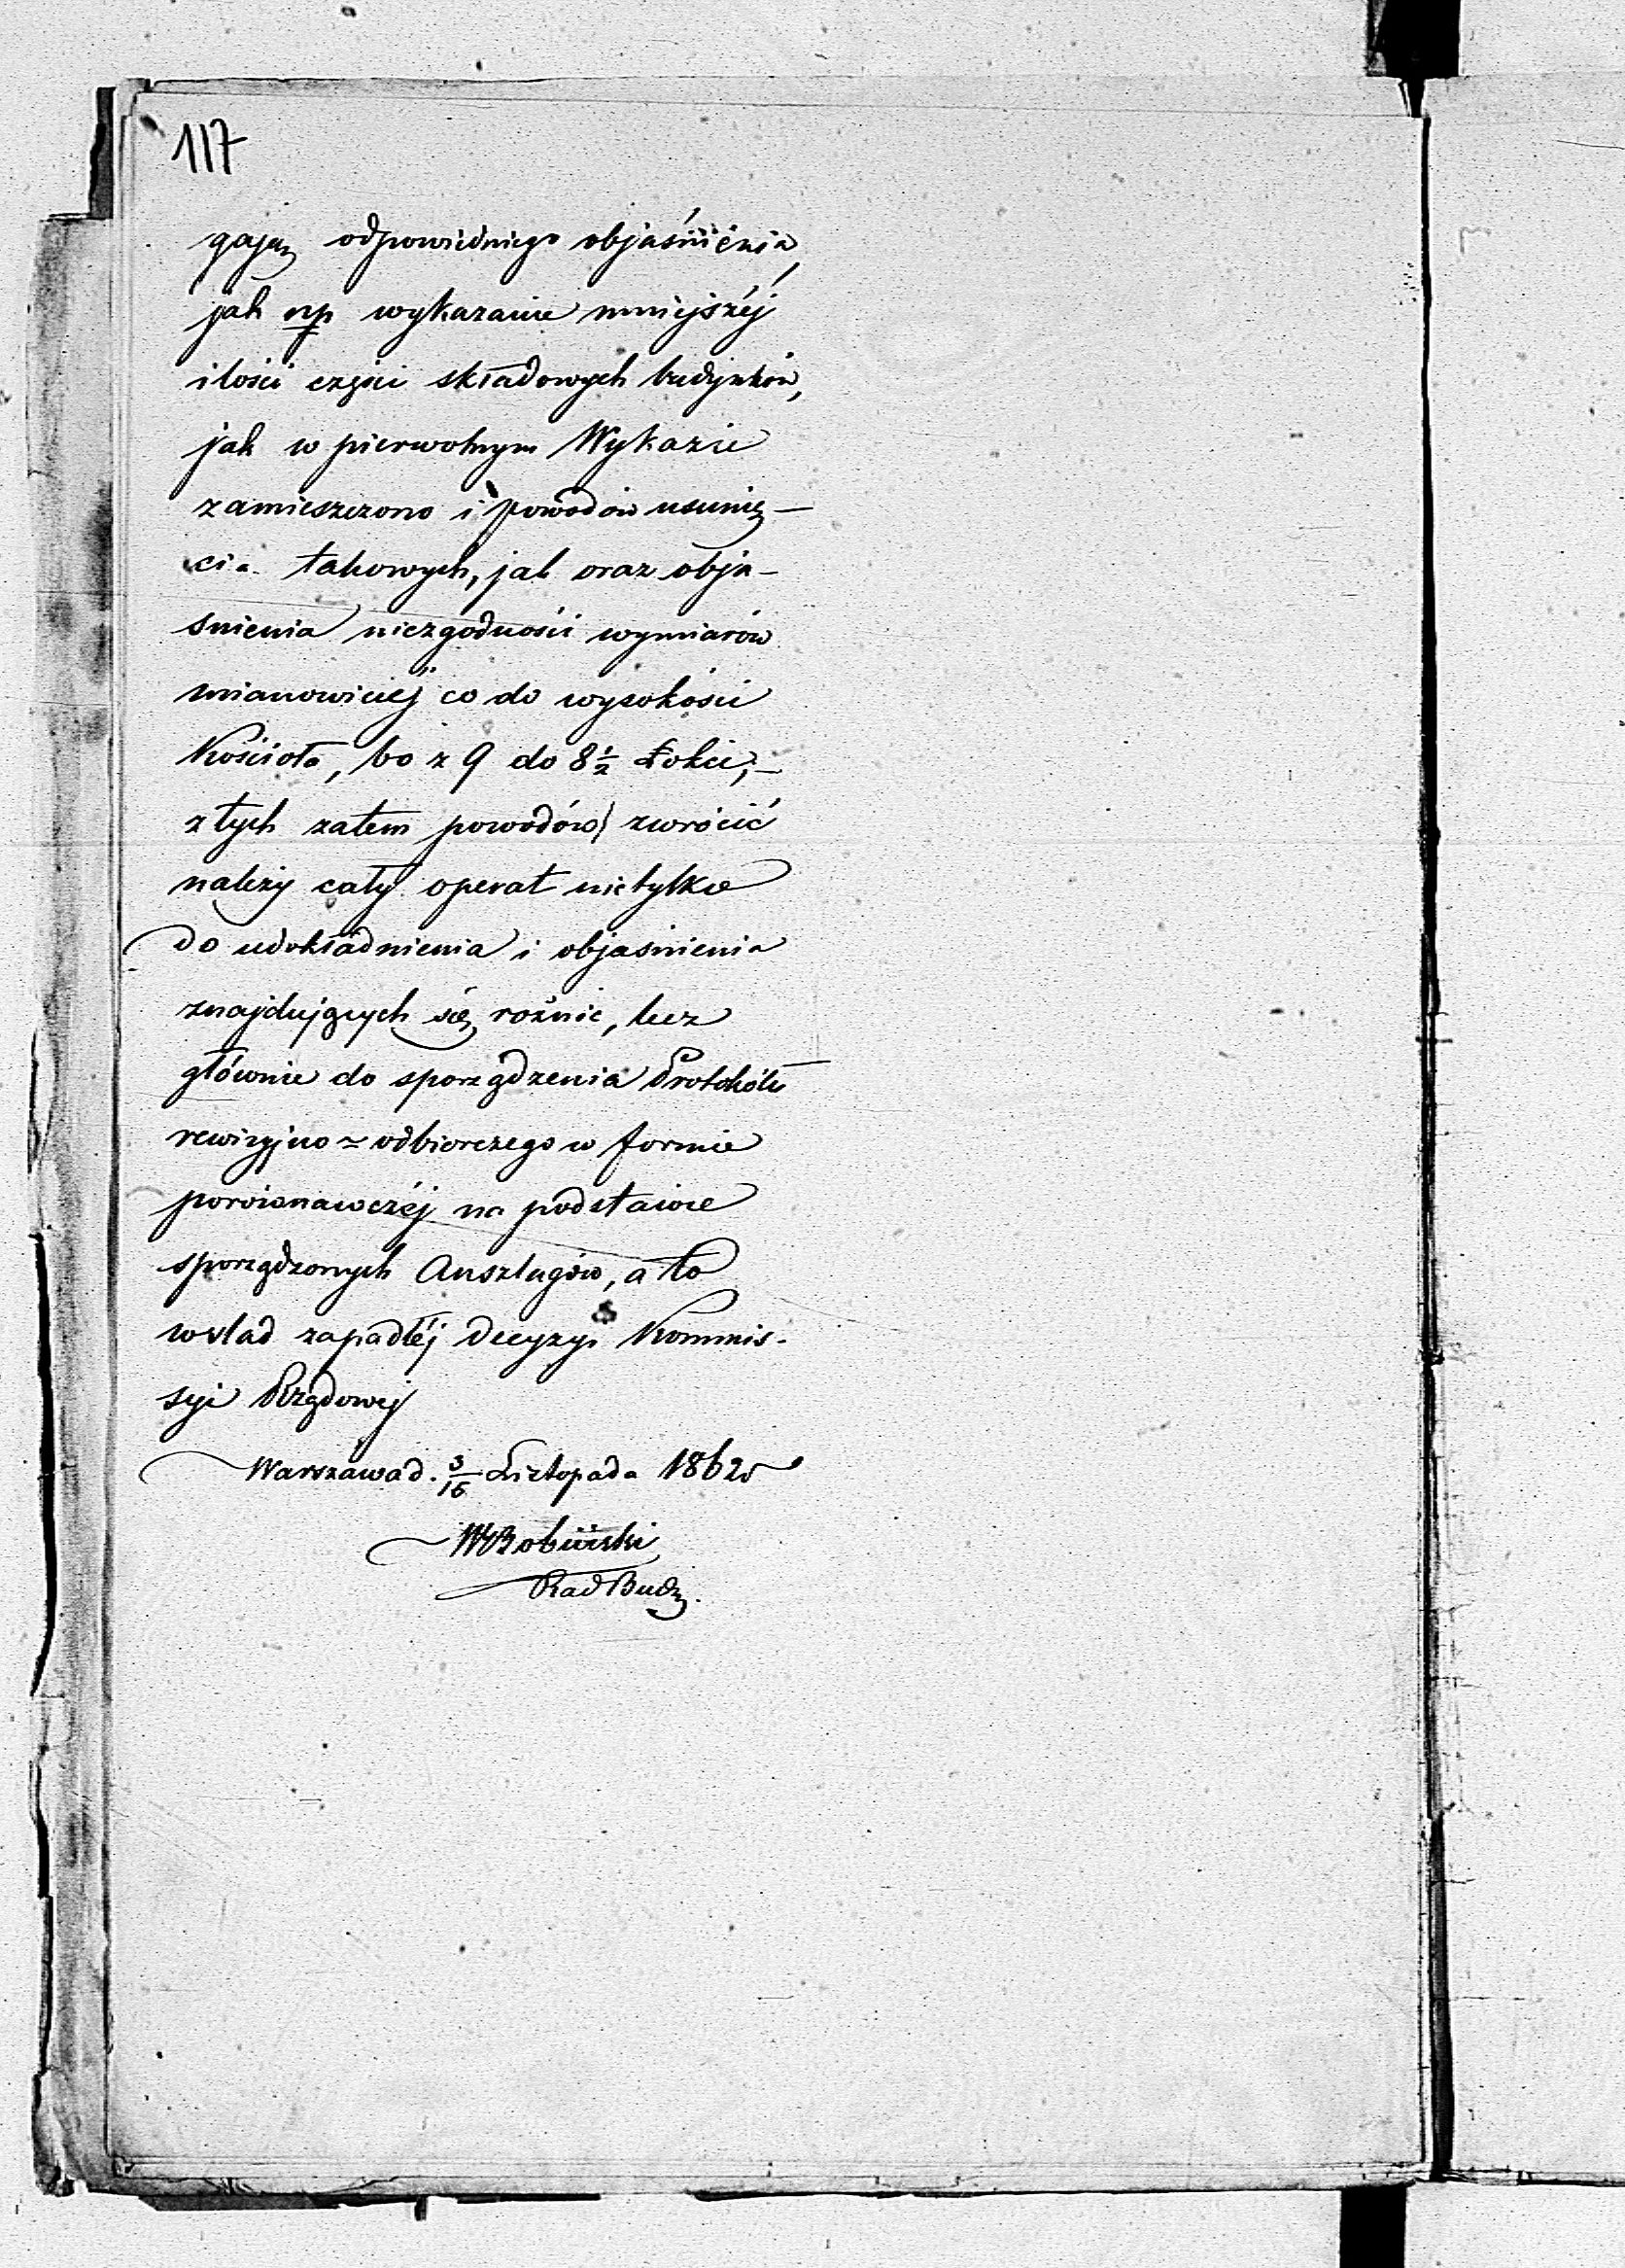 117
gają odpowiedniego objaśnienia,
jak np wykazanie mniejszéj
ilości części składowych budynków,
jak w pierwotnym Wykazie
zamieszczono i powodów usunię-
cia takowych, jak oraz obja-
snienia niezgodności wymiarów
mianowiciej co do wysokości
Kościoła, bo z 9 do 8 1/2 Łokci,-
z tych zatem powodów zwrócić
należy cały operat nietylko
do udokładnienia i objaśnienia
znajdujących się różnic, lecz
głównie do sporządzenia Protokółu
rewizyjno=odbiorczego w formie
porównawczéj na podstawie
sporządzonych Anszlagów, a to
wślad zapadłéj decyzyi Kommis-
syi Rządowej
Warszawa d. 3/15 Listopada 1862 r
Rad Bud.